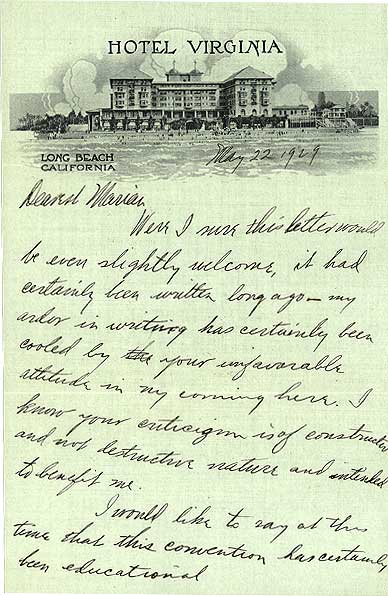 HOTEL VIRGINIA
LONG BEACH
CALIFORNIA
May 22 1929
Dearest Marian,
Were I sure this letter would
be even slightly welcome, it had
certainly been written long ago – my
ardor in writing has certainly been
cooled by the your unfavorable
attitude in my coming here. I
know your criticism is of constructive
and not destructive nature and intended
to benefit me.
I would like to say at this
time that this convention has certainly
been educational